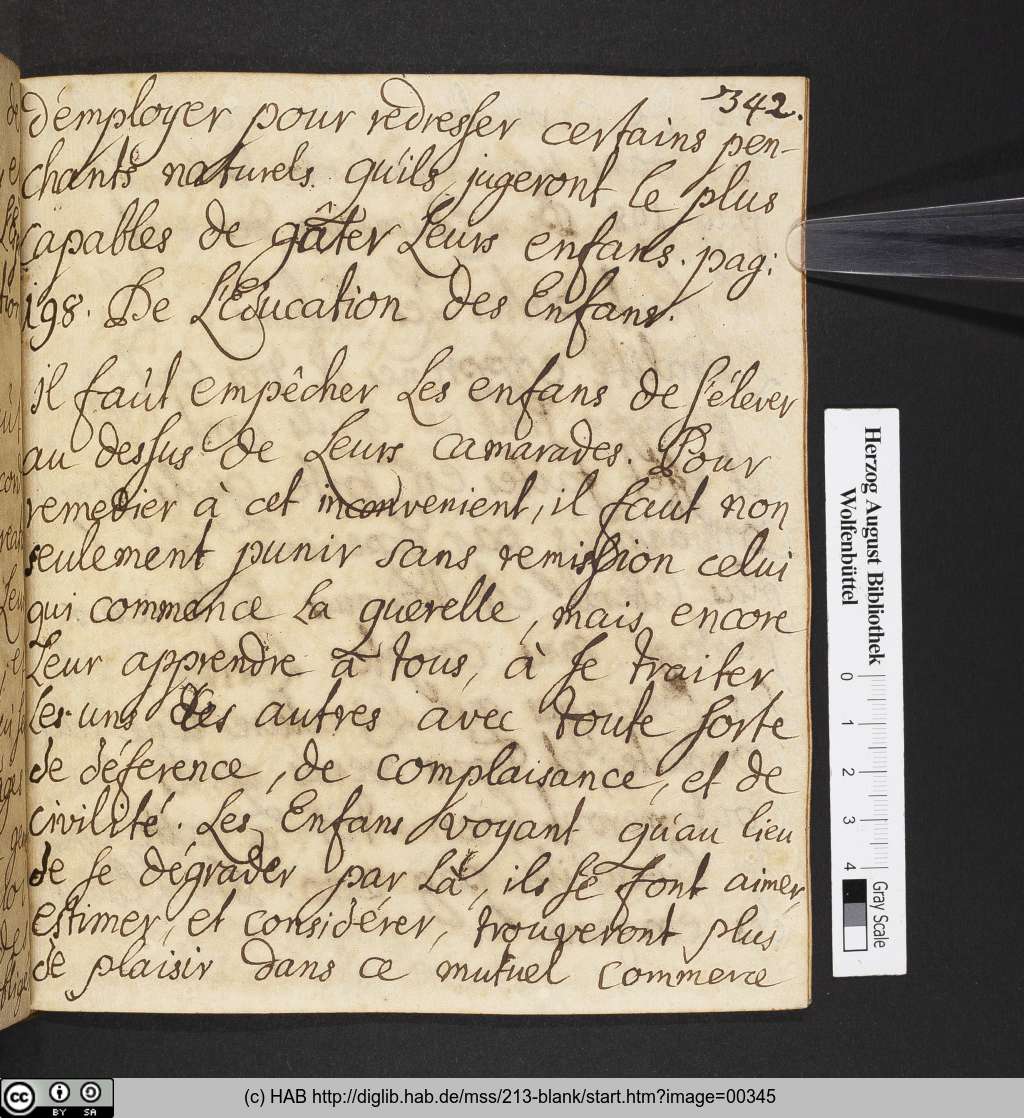 342.
d'employer pour redresser certains pen-
chants naturels qu'ils jugeront le plus
capables de gâter Leurs enfans. pag:
198. De L'Education des Enfans.
il faut empêcher Les enfans de s'élever
au dessus de Leurs camarades. Pour
remedier à cet inconvenient, il faut non
seulement punir sans remission celui
qui commence La querelle, mais encore
Leur apprendre à tous, à se traiter
Les uns Les autres avec toute sorte
de déference, de complaisance, et de
civilité. Les Enfans voyant qu'au lieu
de se dégrader par Là, ils se font aimer,
estimer, et considérer, trouveront plus
de plaisir dans ce mutuel commerce
Herzog August Bibliothek
Wolfenbüttel
0 1 2 3 4
Gray Scale
cc BY SA
(c) HAB http://diglib.hab.de/mss/213-blank/start.htm?image=00345